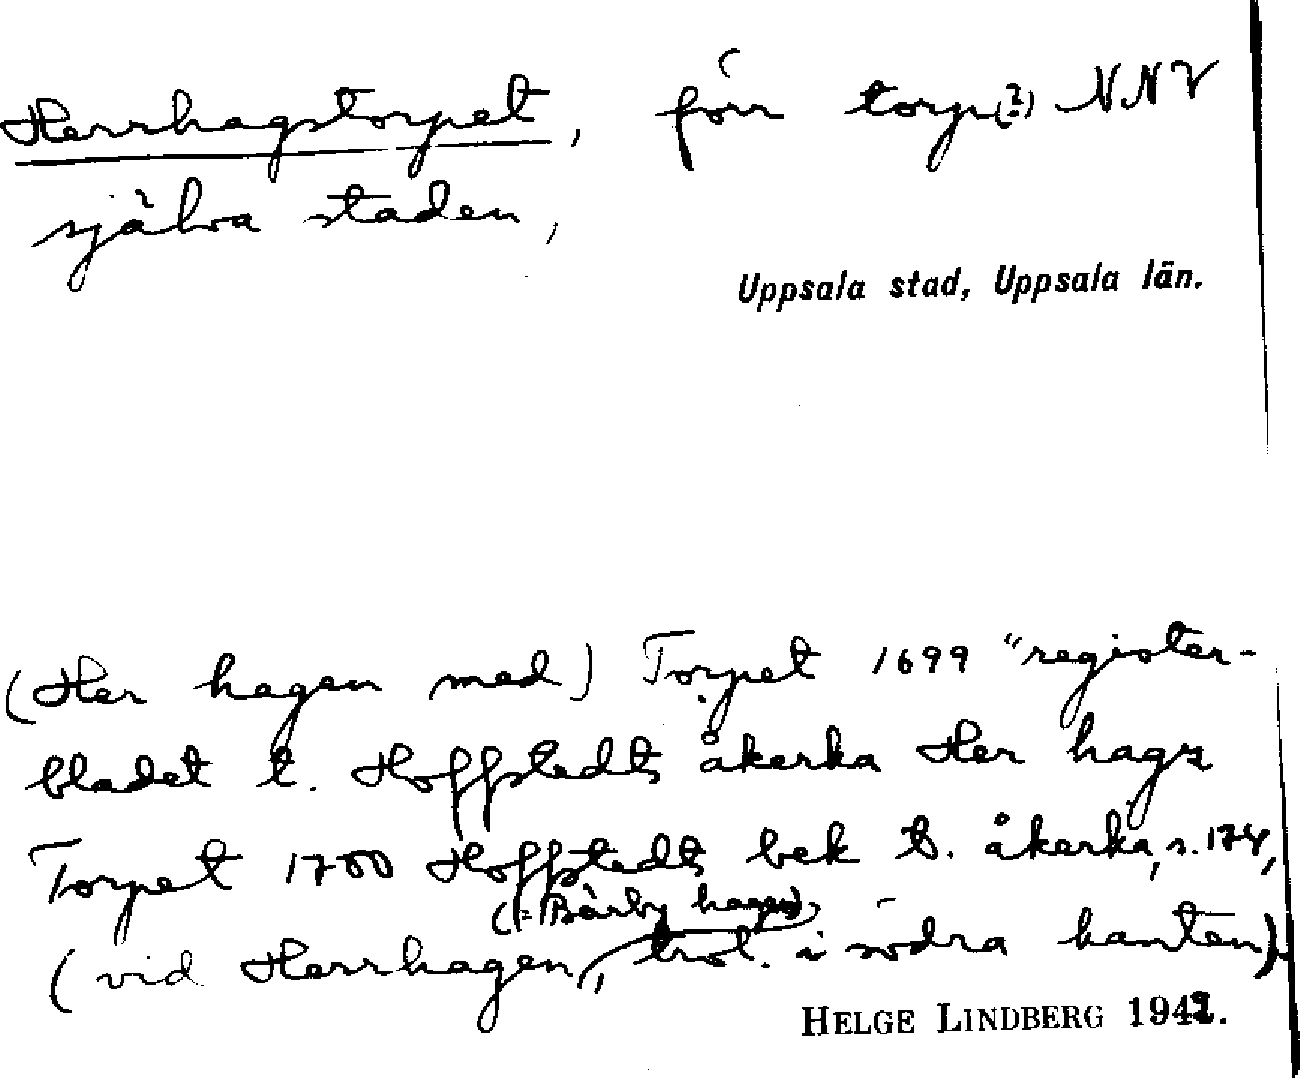 Herrhagstorpet, förr torp(?) NNV
själva staden,
Uppsala stad, Uppsala län.
(Her hagen med) Torpet 1699 "register-
bladet t. Hoffstedts åkerka Her hags
Torpet 1700 Hoffstedts bek t. åkerka, s. 174,
(= Bärby hagen),
(vid Herrhagen, trol. i södra kanten).
HELGE LINDBERG 194